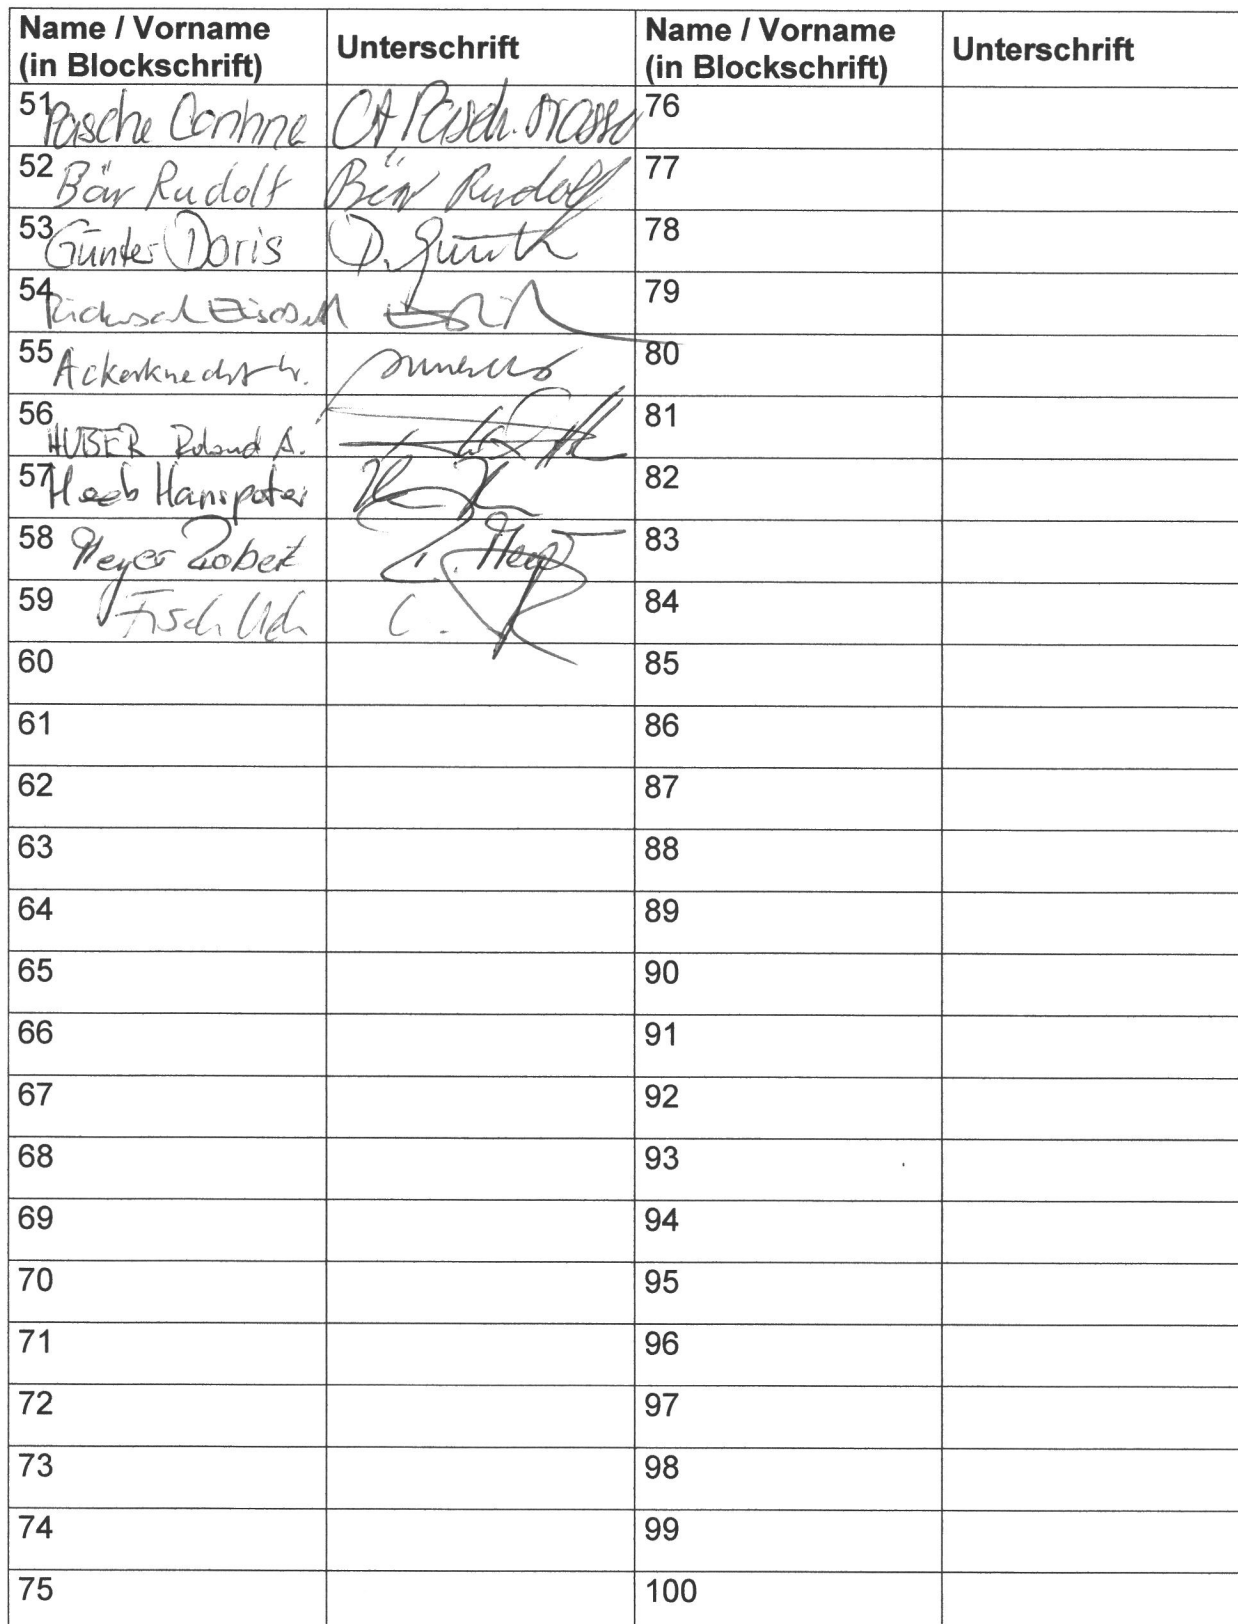 Name / Vorname
(in Blockschrift)
Unterschrift
Name / Vorname
(in Blockschrift)
Unterschrift
51 Pasche Corinne
76
52 Bär Rudolf Bär Rudolf
77
53 Günter Doris D. Günth
78
54
79
55 Ackerknecht
80
56 HUBER Roland A.
81
57 Heeb Hanspeter
82
58 Meyer Robert
83
59 Fisch Ueli
84
60
85
61
86
62
87
63
88
64
89
65
90
66
91
67
92
68
93
69
94
70
95
71
96
72
97
73
98
74
99
75
100